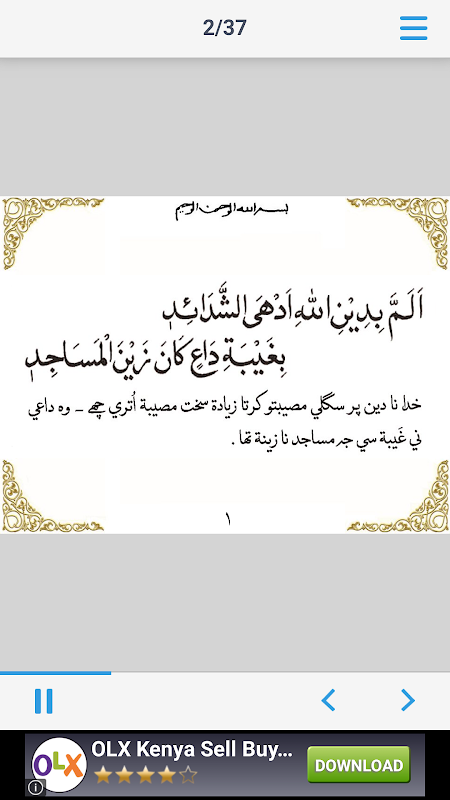 2/37
بسم الله الرحمن الرحيم
اَلَمَّ بِدِيْنِ اللهِ اَدْهَى الشَّدَائِدِ
بِغَيْبَةِ دَاعٍ كَانَ زَيْنَ الْمَسَاجِدِ
خدا نا دين پر سگلي مصيبتو كرتا زيادة سخت مصيبة اُتري چھے ــ وه داعي
ني غَيبة سي جہ مساجد نا زينة تھا .
١
OLX
OLX Kenya Sell Buy...
DOWNLOAD